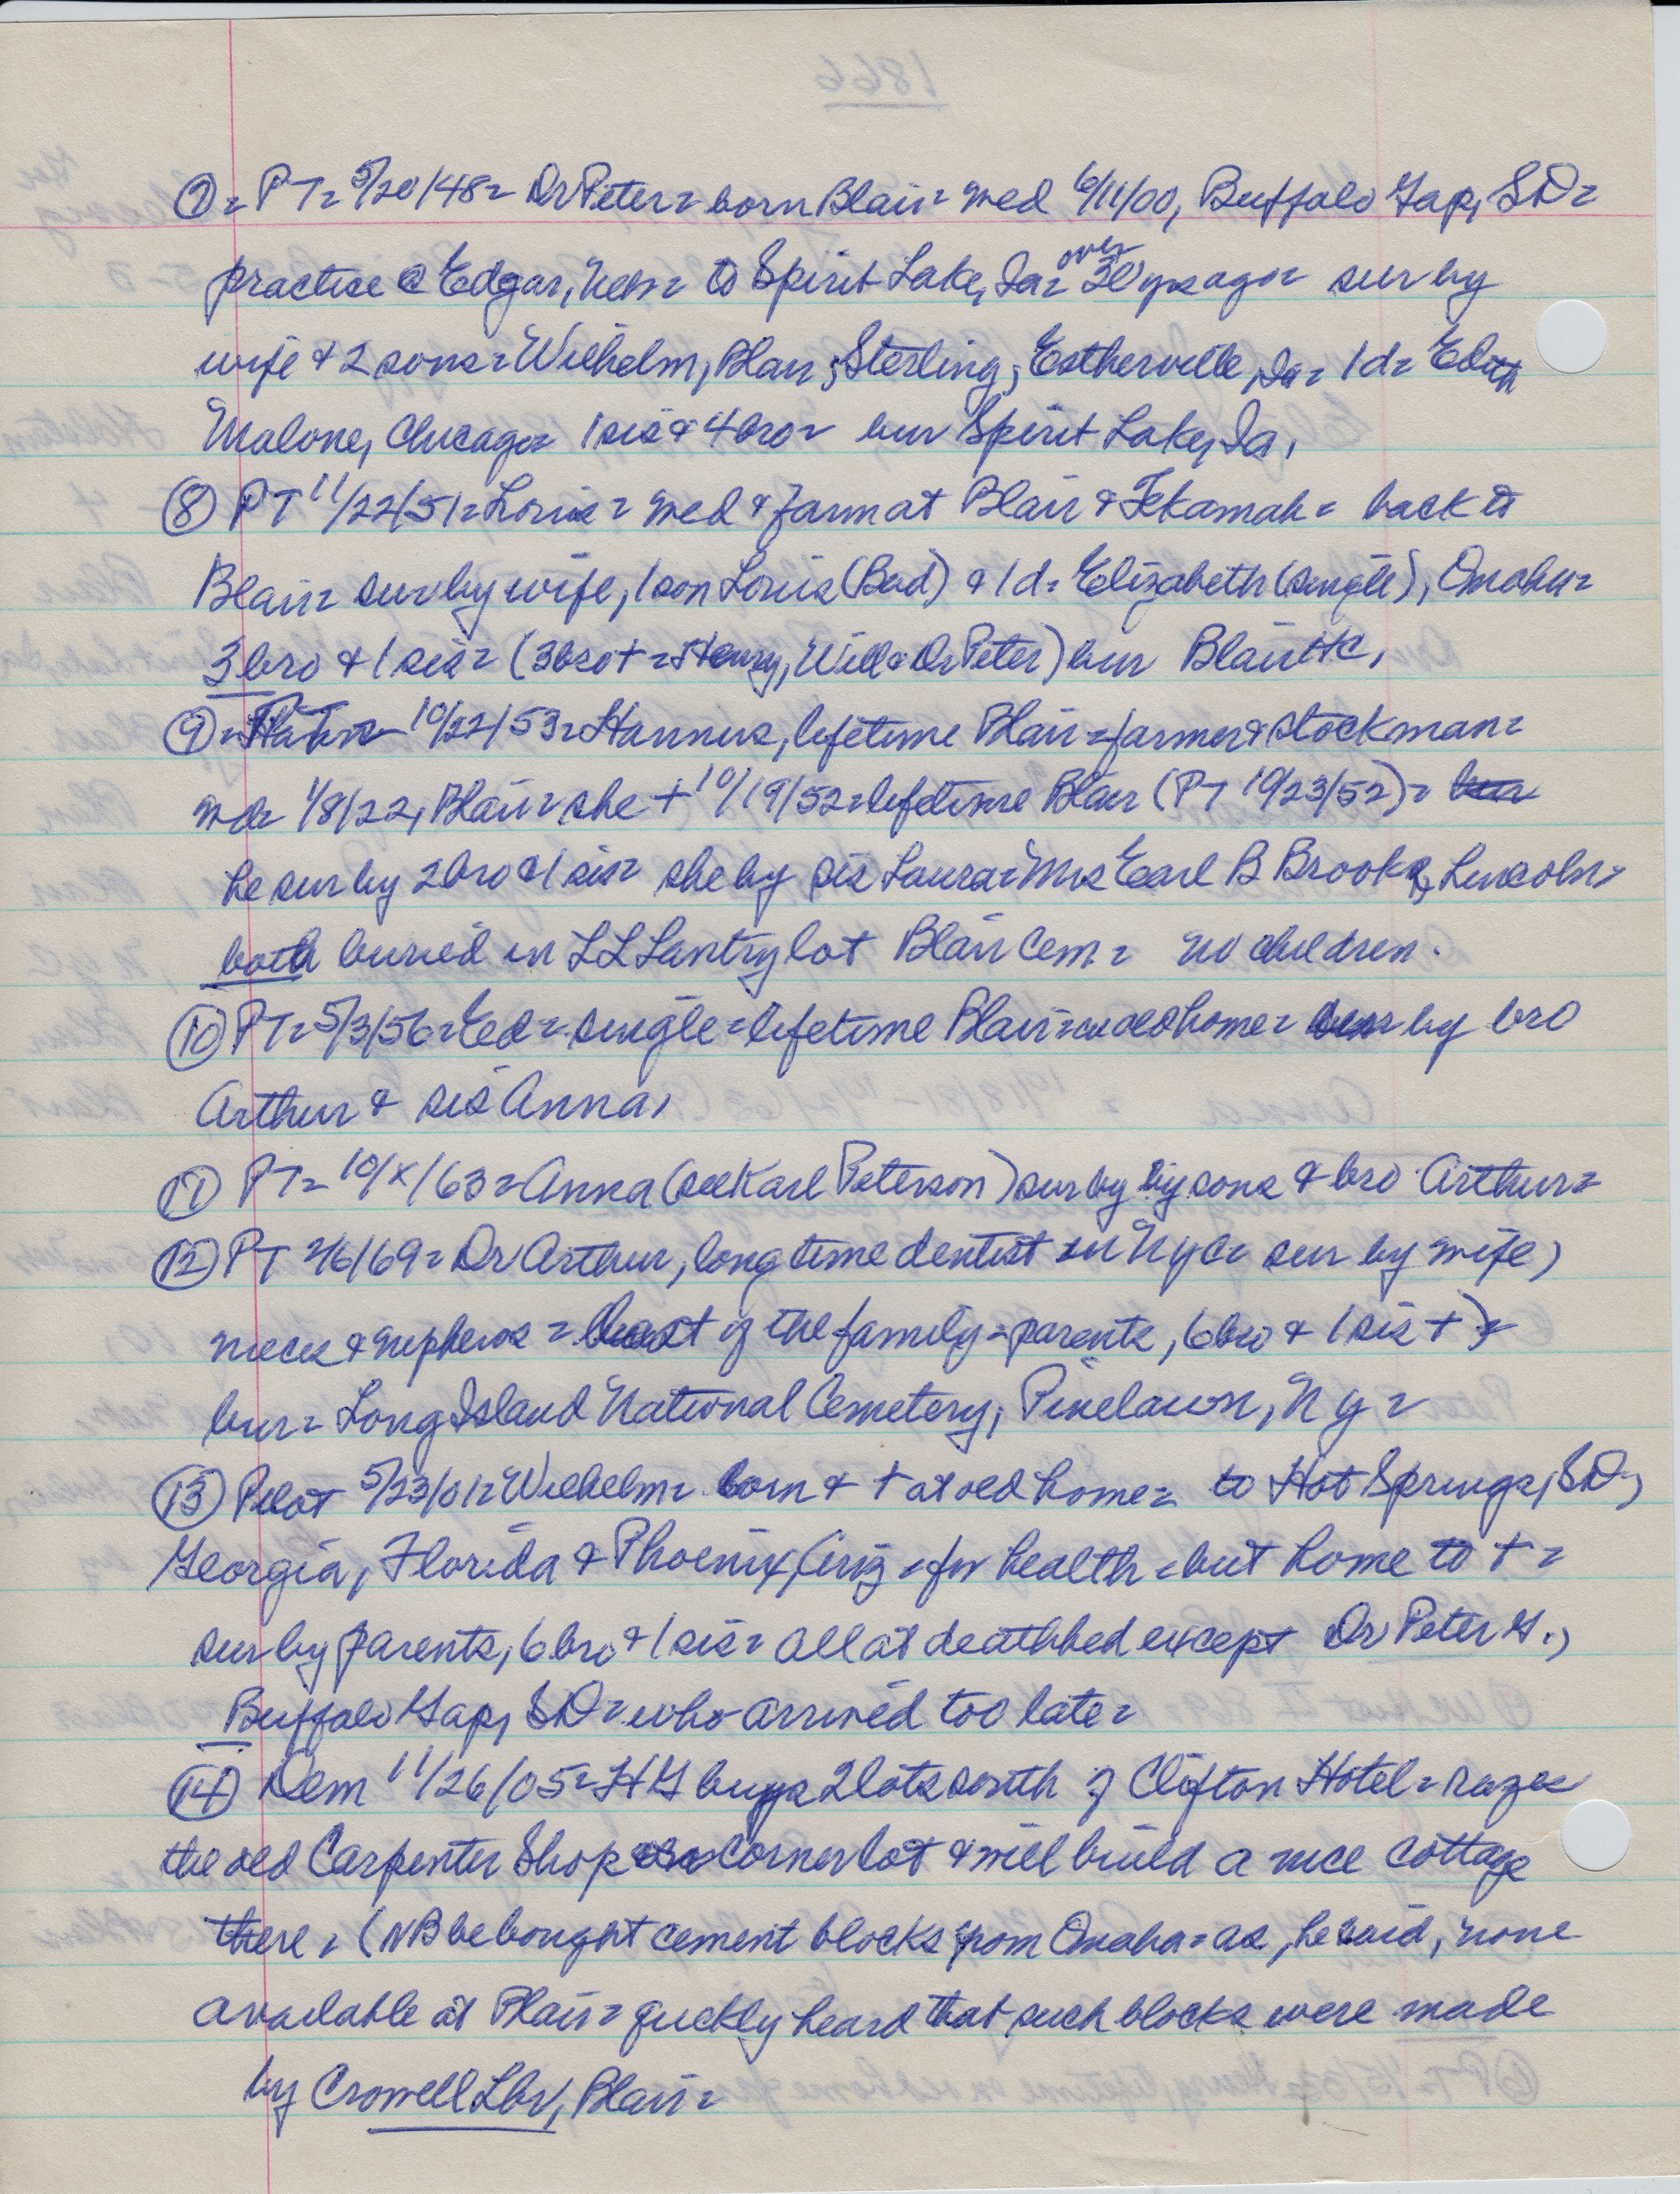 ⑦ = PT = 5/20/48 = Dr Peter = born Blair = med 6/11/00, Buffalo Gap, SD =
practice @ Edgar, Neb = to Spirit Lake, Ia = over 30 yrs ago = sur by
wife & 2 sons = Wilhelm, Blair; Sterling; Estherville, Ia = 1 d = Edith
Malone, Chicago = 1 sis & 4 bro = bur Spirit Lake, Ia,
⑧ PT 11/22/51 = Louis = med & farm at Blair & Tekamah = back to
Blair = sur by wife, 1 son Louis (Bud) & 1 d = Elizabeth (single), Omaha =
3 bro & 1 sis = (3 bro + = Henry, Will & Dr Peter) bur Blair
⑨ = 10/22/53 = Hannus, lifetime Blair = farmer & stockman =
md = 1/8/22, Blair = she + 10/19/52 = lifetime Blair (PT 10/23/52) =
he sur by 2 bro & 1 sis = she by sis Laura = Mrs Earl B Brooks, Lincoln =
both buried in LL Lantry lot Blair Cem = no children.
⑩ PT = 5/3/56 = Ed = single = lifetime Blair = in old home = sur by bro
Arthur & sis Anna,
⑪ PT = 10/x/63 = Anna (see Karl Peterson) sur by by sons & bro Arthur =
⑫ PT 2/6/69 = Dr Arthur, long time dentist in NYC = sur by wife,
nieces & nephews = last of the family = parents, 6 bro & 1 sis +
bur = Long Island National Cemetery, Pinelawn, NY =
⑬ Pilot 5/23/01 = Wilhelm = born & + at old home = to Hot Springs, SD,
Georgia, Florida & Phoenix, Ariz = for health = but home to + =
sur by parents, 6 bro & 1 sis = all at deathbed except Dr Peter G.,
Buffalo Gap, SD = who arrived too late =
⑭ Dem 11/26/05 = HG buys 2 lots south of Clifton Hotel = razes
the old Carpenter Shop on corner lot & will build a nice cottage
there, (NB he bought cement blocks from Omaha = as, he said, none
available at Blair = quickly heard that such blocks were made
by Crowell Lbr, Blair =